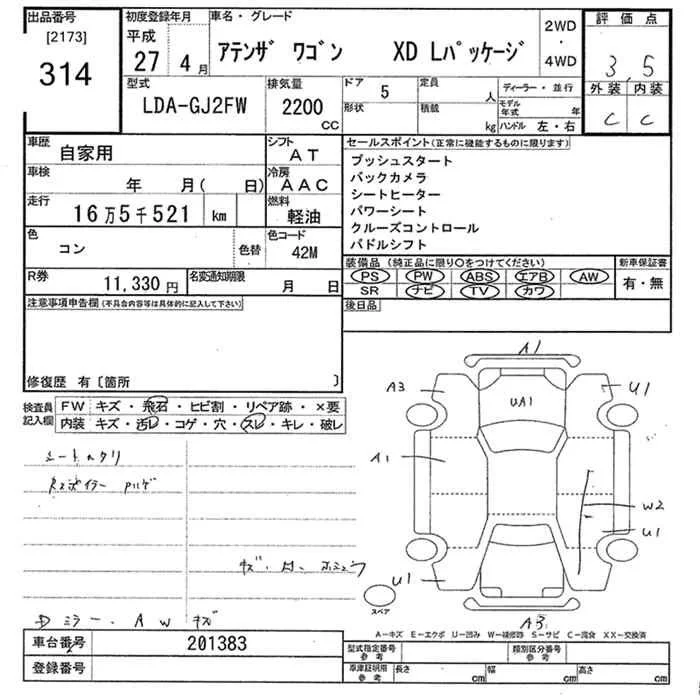 出品番号 初度登録年月 車名・グレード 2WD・4WD 評価点
[2173] 314
平成 27 4月
アテンザ ワゴン XD Lパッケージ
3.5
外装 内装
C C
型式 排気量 ドア 5 定員 人 ディーラー・並行
LDA-GJ2FW 2200 CC
形状 積載 kg モデル年式 年
ハンドル 左・右
車歴 自家用 シフト AT
車検 年 月( 日) 冷房 AAC
走行 16万5千521 km 燃料 軽油
色 コン 色替 色コード 42M
R券 11,330円 名変通知期限 月 日
セールスポイント(正常に機能するものに限ります)
プッシュスタート
バックカメラ
シートヒーター
パワーシート
クルーズコントロール
パドルシフト
装備品(純正品に限り○をつけてください) 新車保証書
PS PW ABS エアB AW 有・無
SR ナビ TV カワ
後日品
注意事項申告欄(不具合内容等は具体的に記入して下さい)
修復歴 有〔箇所 〕
検査員記入欄 FW キズ・飛石・ヒビ割・リペア跡・×要
内装 キズ・汚レ・コゲ・穴・スレ・キレ・破レ
シートヘタリ
Rスポイラー ハゲ
Dミラー・AW キズ
A1
A3 U1
UA1
A1
W2
U1
U1
A3
スペア
A-キズ E-エクボ U-凹み W-補修跡 S-サビ C-腐食 XX-交換済
車台番号 201383 型式指定番号 参考 類別区分番号 参考
登録番号 車庫証明用 参考 長さ cm 幅 cm 高さ cm